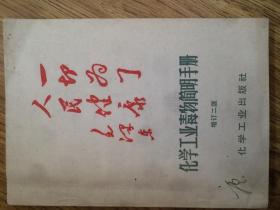 一切为了
人民健康
毛泽东
化学工业毒物简明手册
增订二版
化学工业出版社